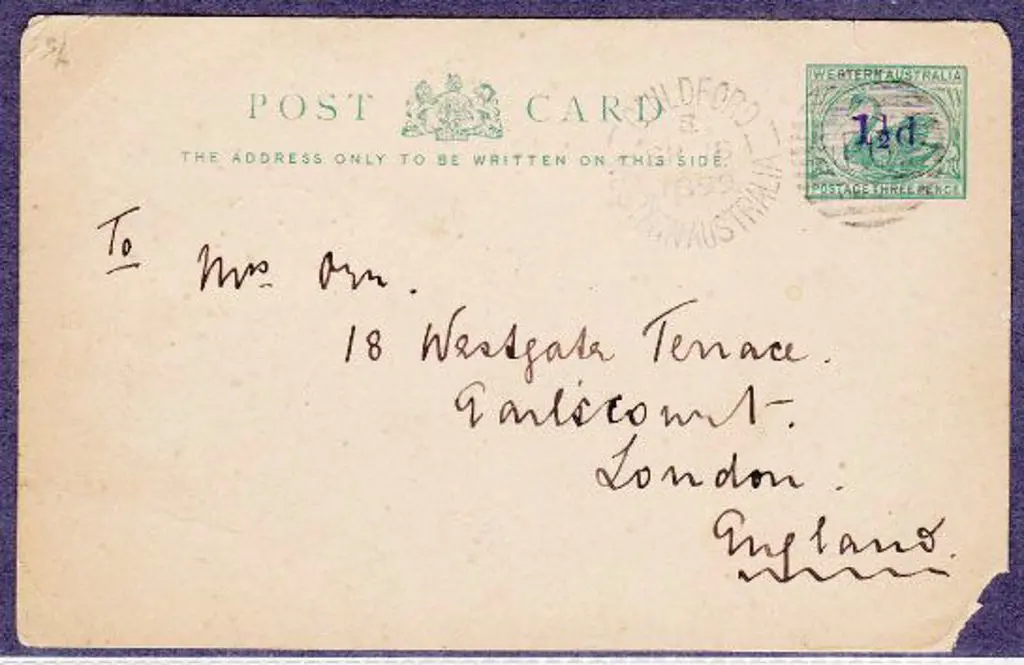 POST CARD
THE ADDRESS ONLY TO BE WRITTEN ON THIS SIDE.
GUILDFORD
1899
WESTERN AUSTRALIA
WESTERN AUSTRALIA
1½d
POSTAGE THREE PENCE
To
Mrs. Orr.
18 Westgate Terrace.
Earl's Court.
London.
England.